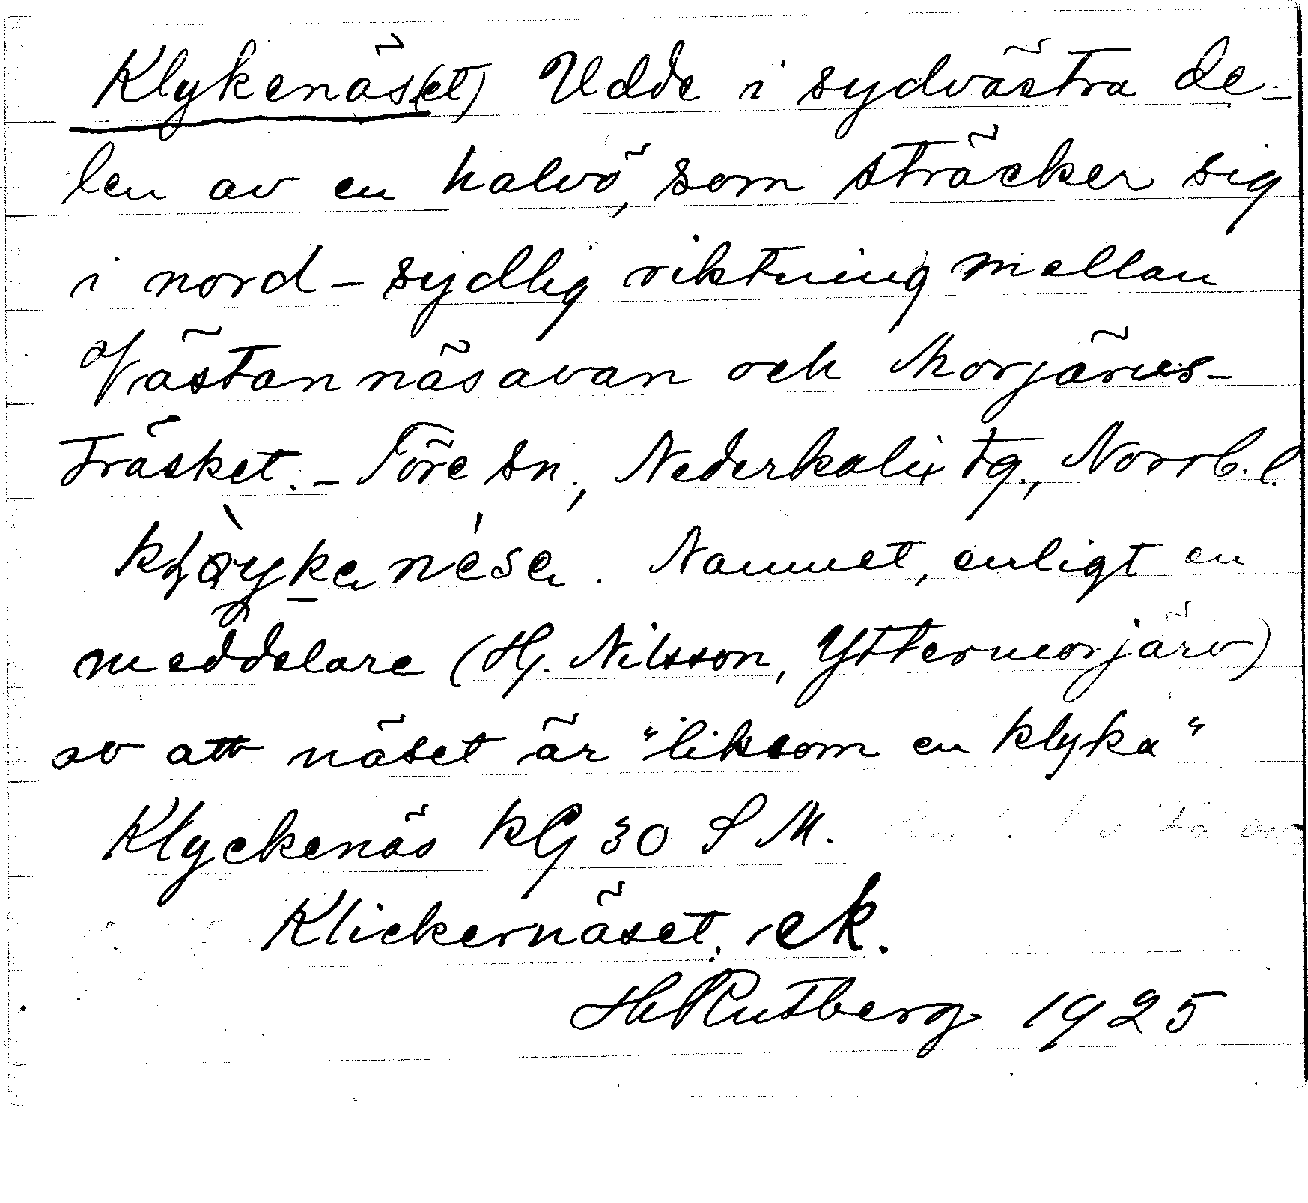 Klykenäs(et) Udde i sydvästra de-
len av en halvö, som sträcker sig
i nord-sydlig riktning mellan
Västannäsavan och Morjärvs-
träsket. - Töre sn, Nederkalix tg., Norrb. l.
Namnet, enligt en
meddelare (Hj. Nilsson, Yttermorjärv)
av att näset är "liksom en klyka"
Klyckenäs kG 30 S M.
Klickernäset. ek.
H Rutberg 1925